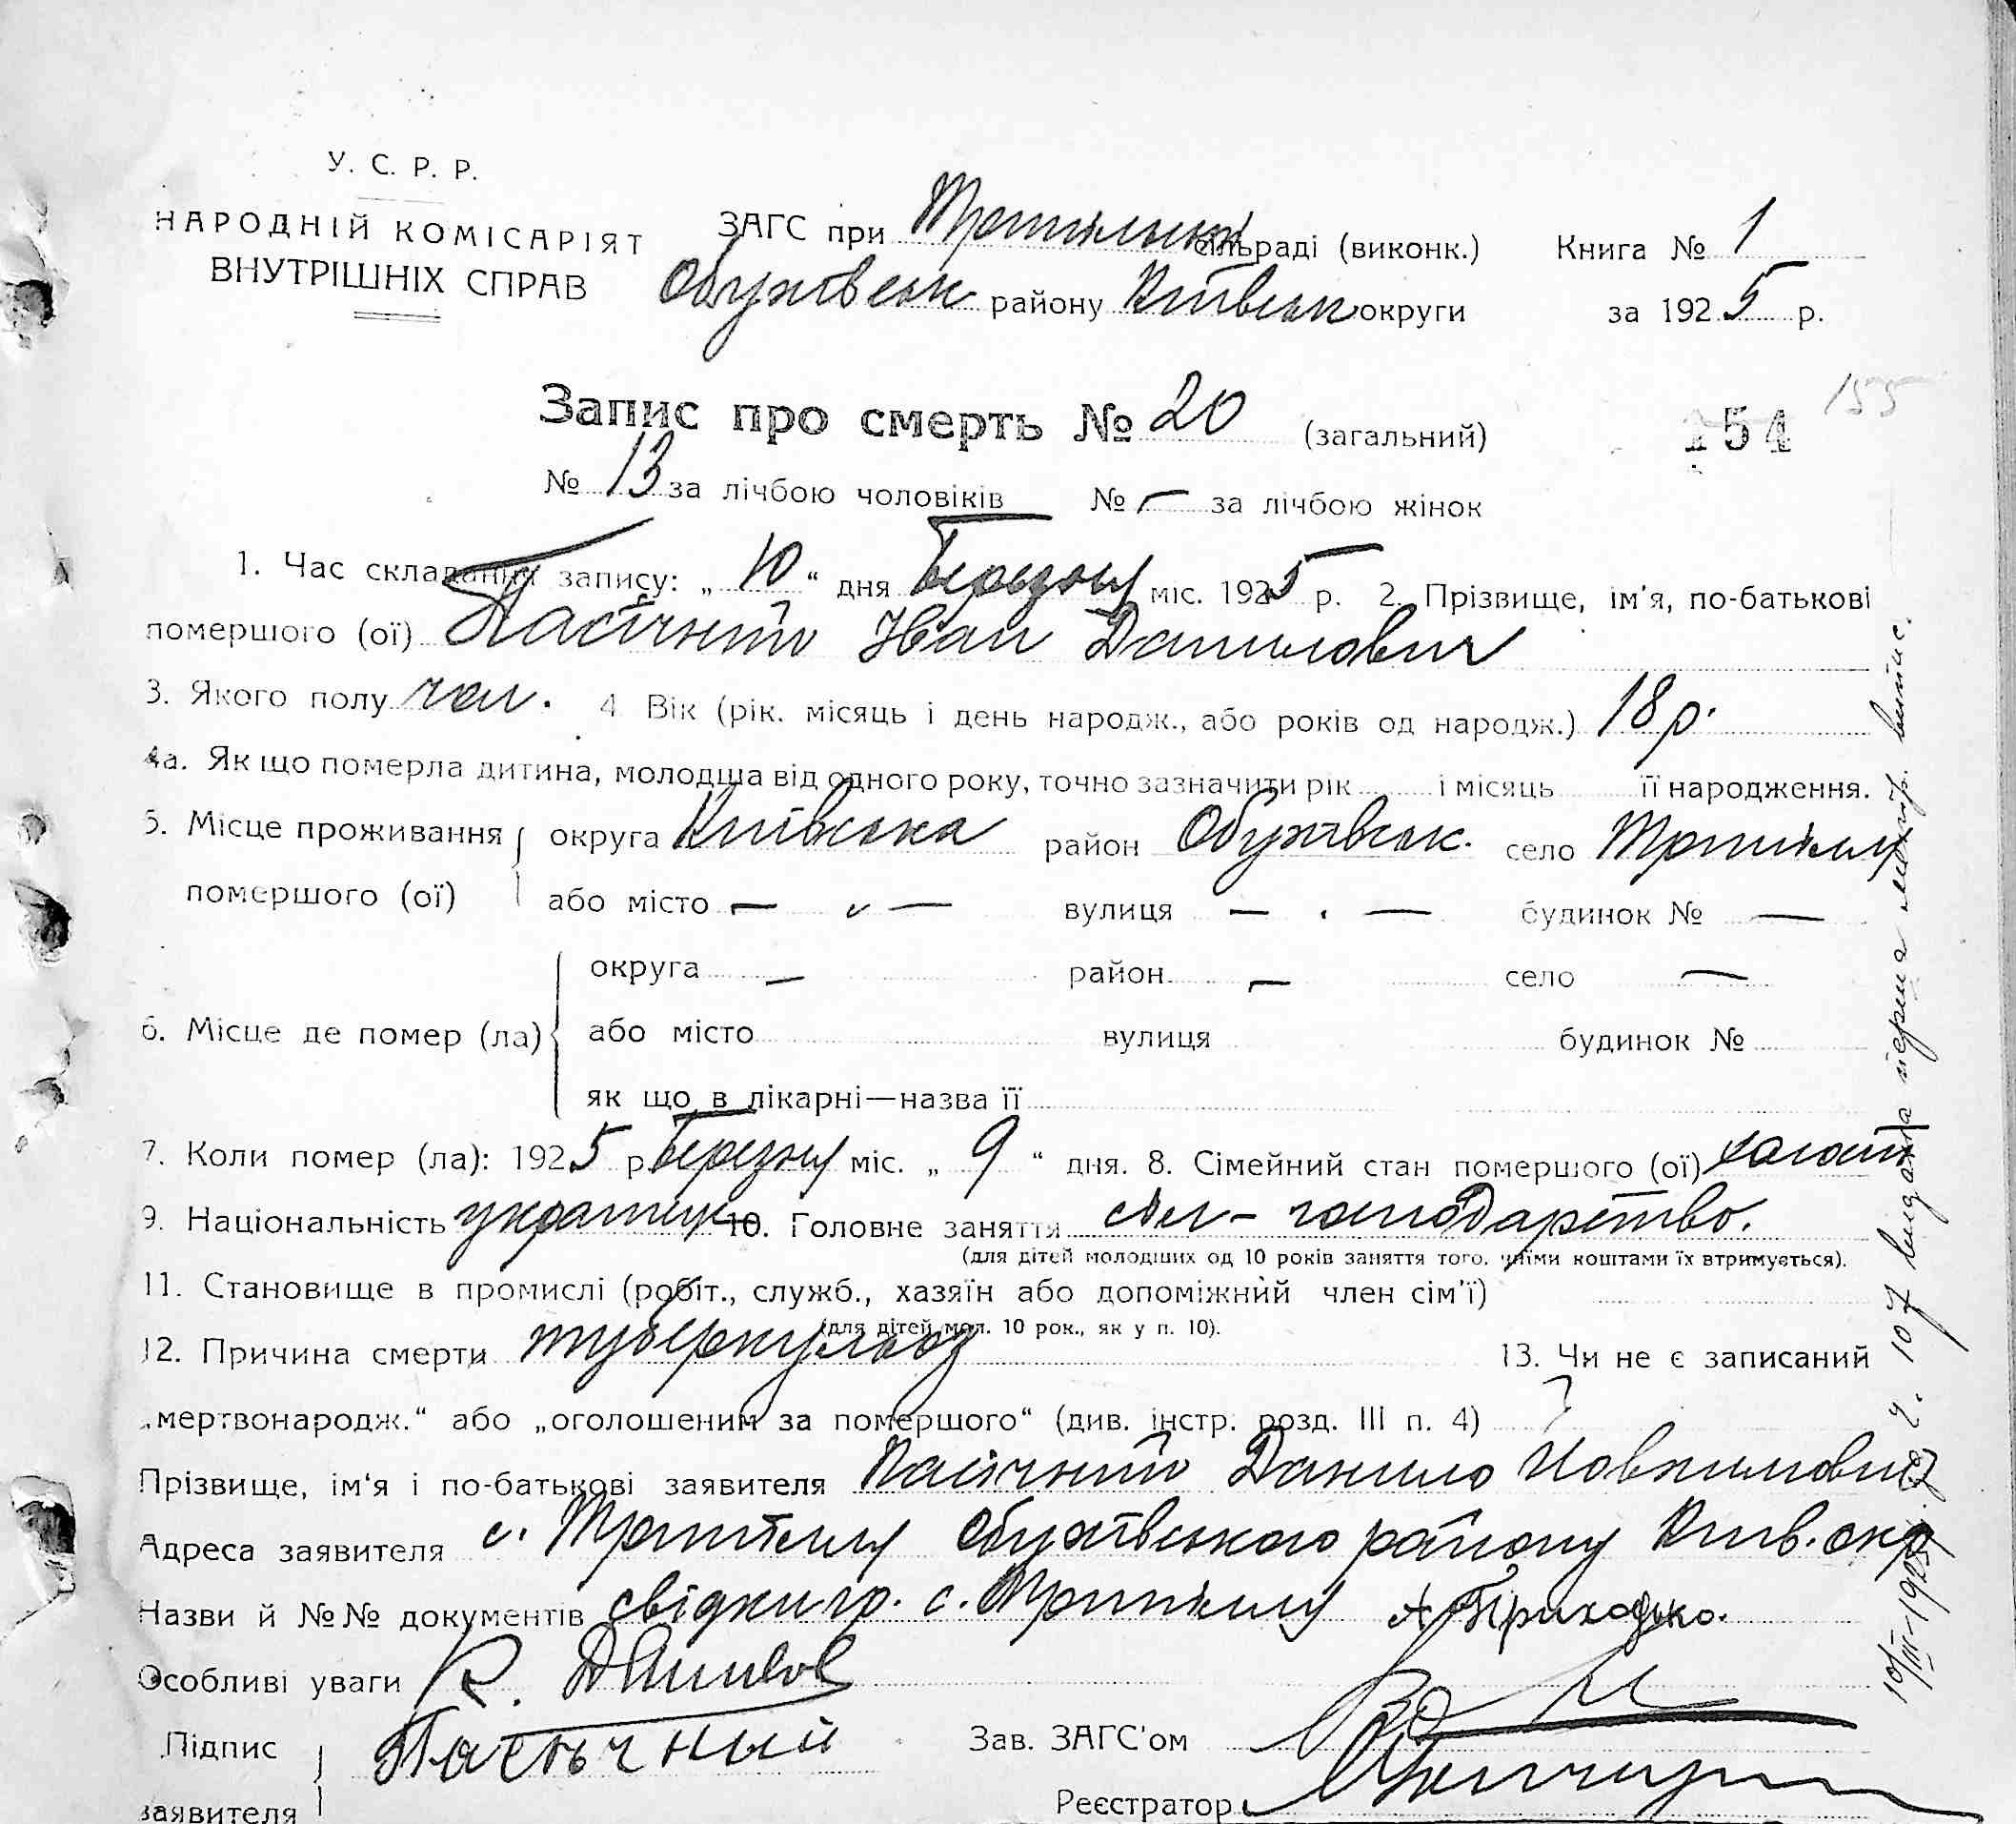 У. С. Р. Р.
НАРОДНІЙ КОМІСАРІЯТ
ВНУТРІШНІХ СПРАВ
ЗАГС при Трипільськ сільраді (виконк.) Книга № 1
Обухівськ району Київськ округи за 1925 р.
Запис про смерть № 20 (загальний)
154 155
№ 13 за лічбою чоловіків № — за лічбою жінок
1. Час складання запису: „10“ дня Березня міс. 1925 р. 2. Прізвище, ім'я, по-батькові
помершого (ої) Пасічний Іван Данилович
3. Якого полу чол. 4 Вік (рік. місяць і день народж., або років од народж.) 18 р.
4а. Як що померла дитина, молодша від одного року, точно зазначити рік і місяць її народження.
5. Місце проживання округа Київська район Обухівськ. село Трипілля
помершого (ої) або місто — „ — вулиця — . — будинок № —
округа — район — село —
6. Місце де помер (ла) або місто вулиця будинок №
як що в лікарні—назва її
7. Коли помер (ла): 1925 р Березня міс. „9“ дня. 8. Сімейний стан помершого (ої) холост
9. Національність українець 10. Головне заняття сіл-господарство.
(для дітей молодших од 10 років заняття того, чиїми коштами їх втримується).
11. Становище в промислі (робіт., служб., хазяїн або допоміжний член сім'ї)
(для дітей мол. 10 рок., як у п. 10).
12. Причина смерти туберкульоз 13. Чи не є записаний
„мертвонародж.“ або „оголошеним за помершого“ (див. інстр. розд. III п. 4)
Прізвище, ім'я і по-батькові заявителя Пасічний Данило Йовхимович
Адреса заявителя с. Трипілля Обухівського району Київ. окр
Назви й №№ документів свідки гр. с. Трипілля А Приходько.
Особливі уваги К.
Підпис
заявителя Пасычный
Зав. ЗАГС'ом
Реєстратор
видана перша метр. випис.